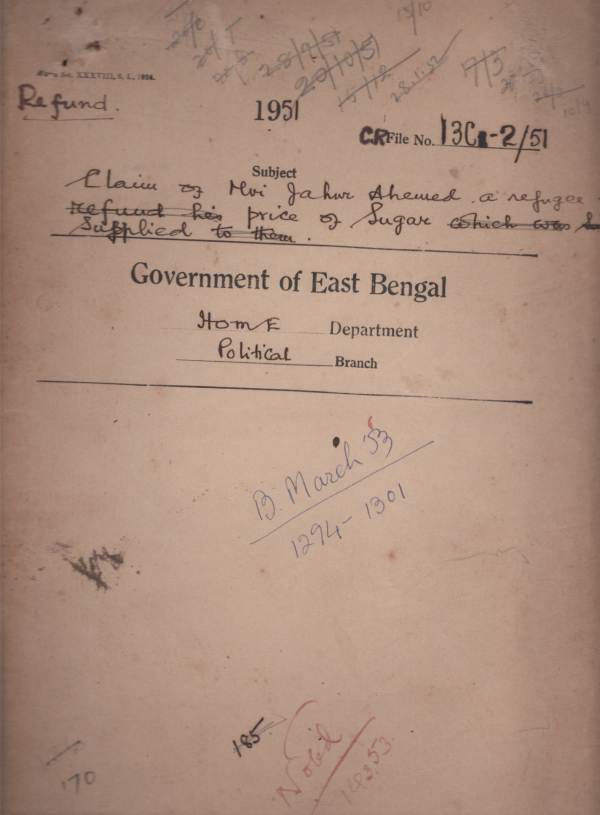 13/10
28/9/51
20/10/51
15/12
28.1.52
17/3
Refund.
1951
CR File No. 13C-2/51
Subject
Claim of Mvi Jahur Ahemed a refugee
refund his price of Sugar which was
Supplied to them.
Government of East Bengal
HomE Department
Political Branch
B. March '53
1294-1301
185
170
Noted